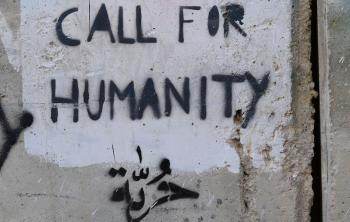 CALL FOR
HUMANITY
حُرِّيَّة